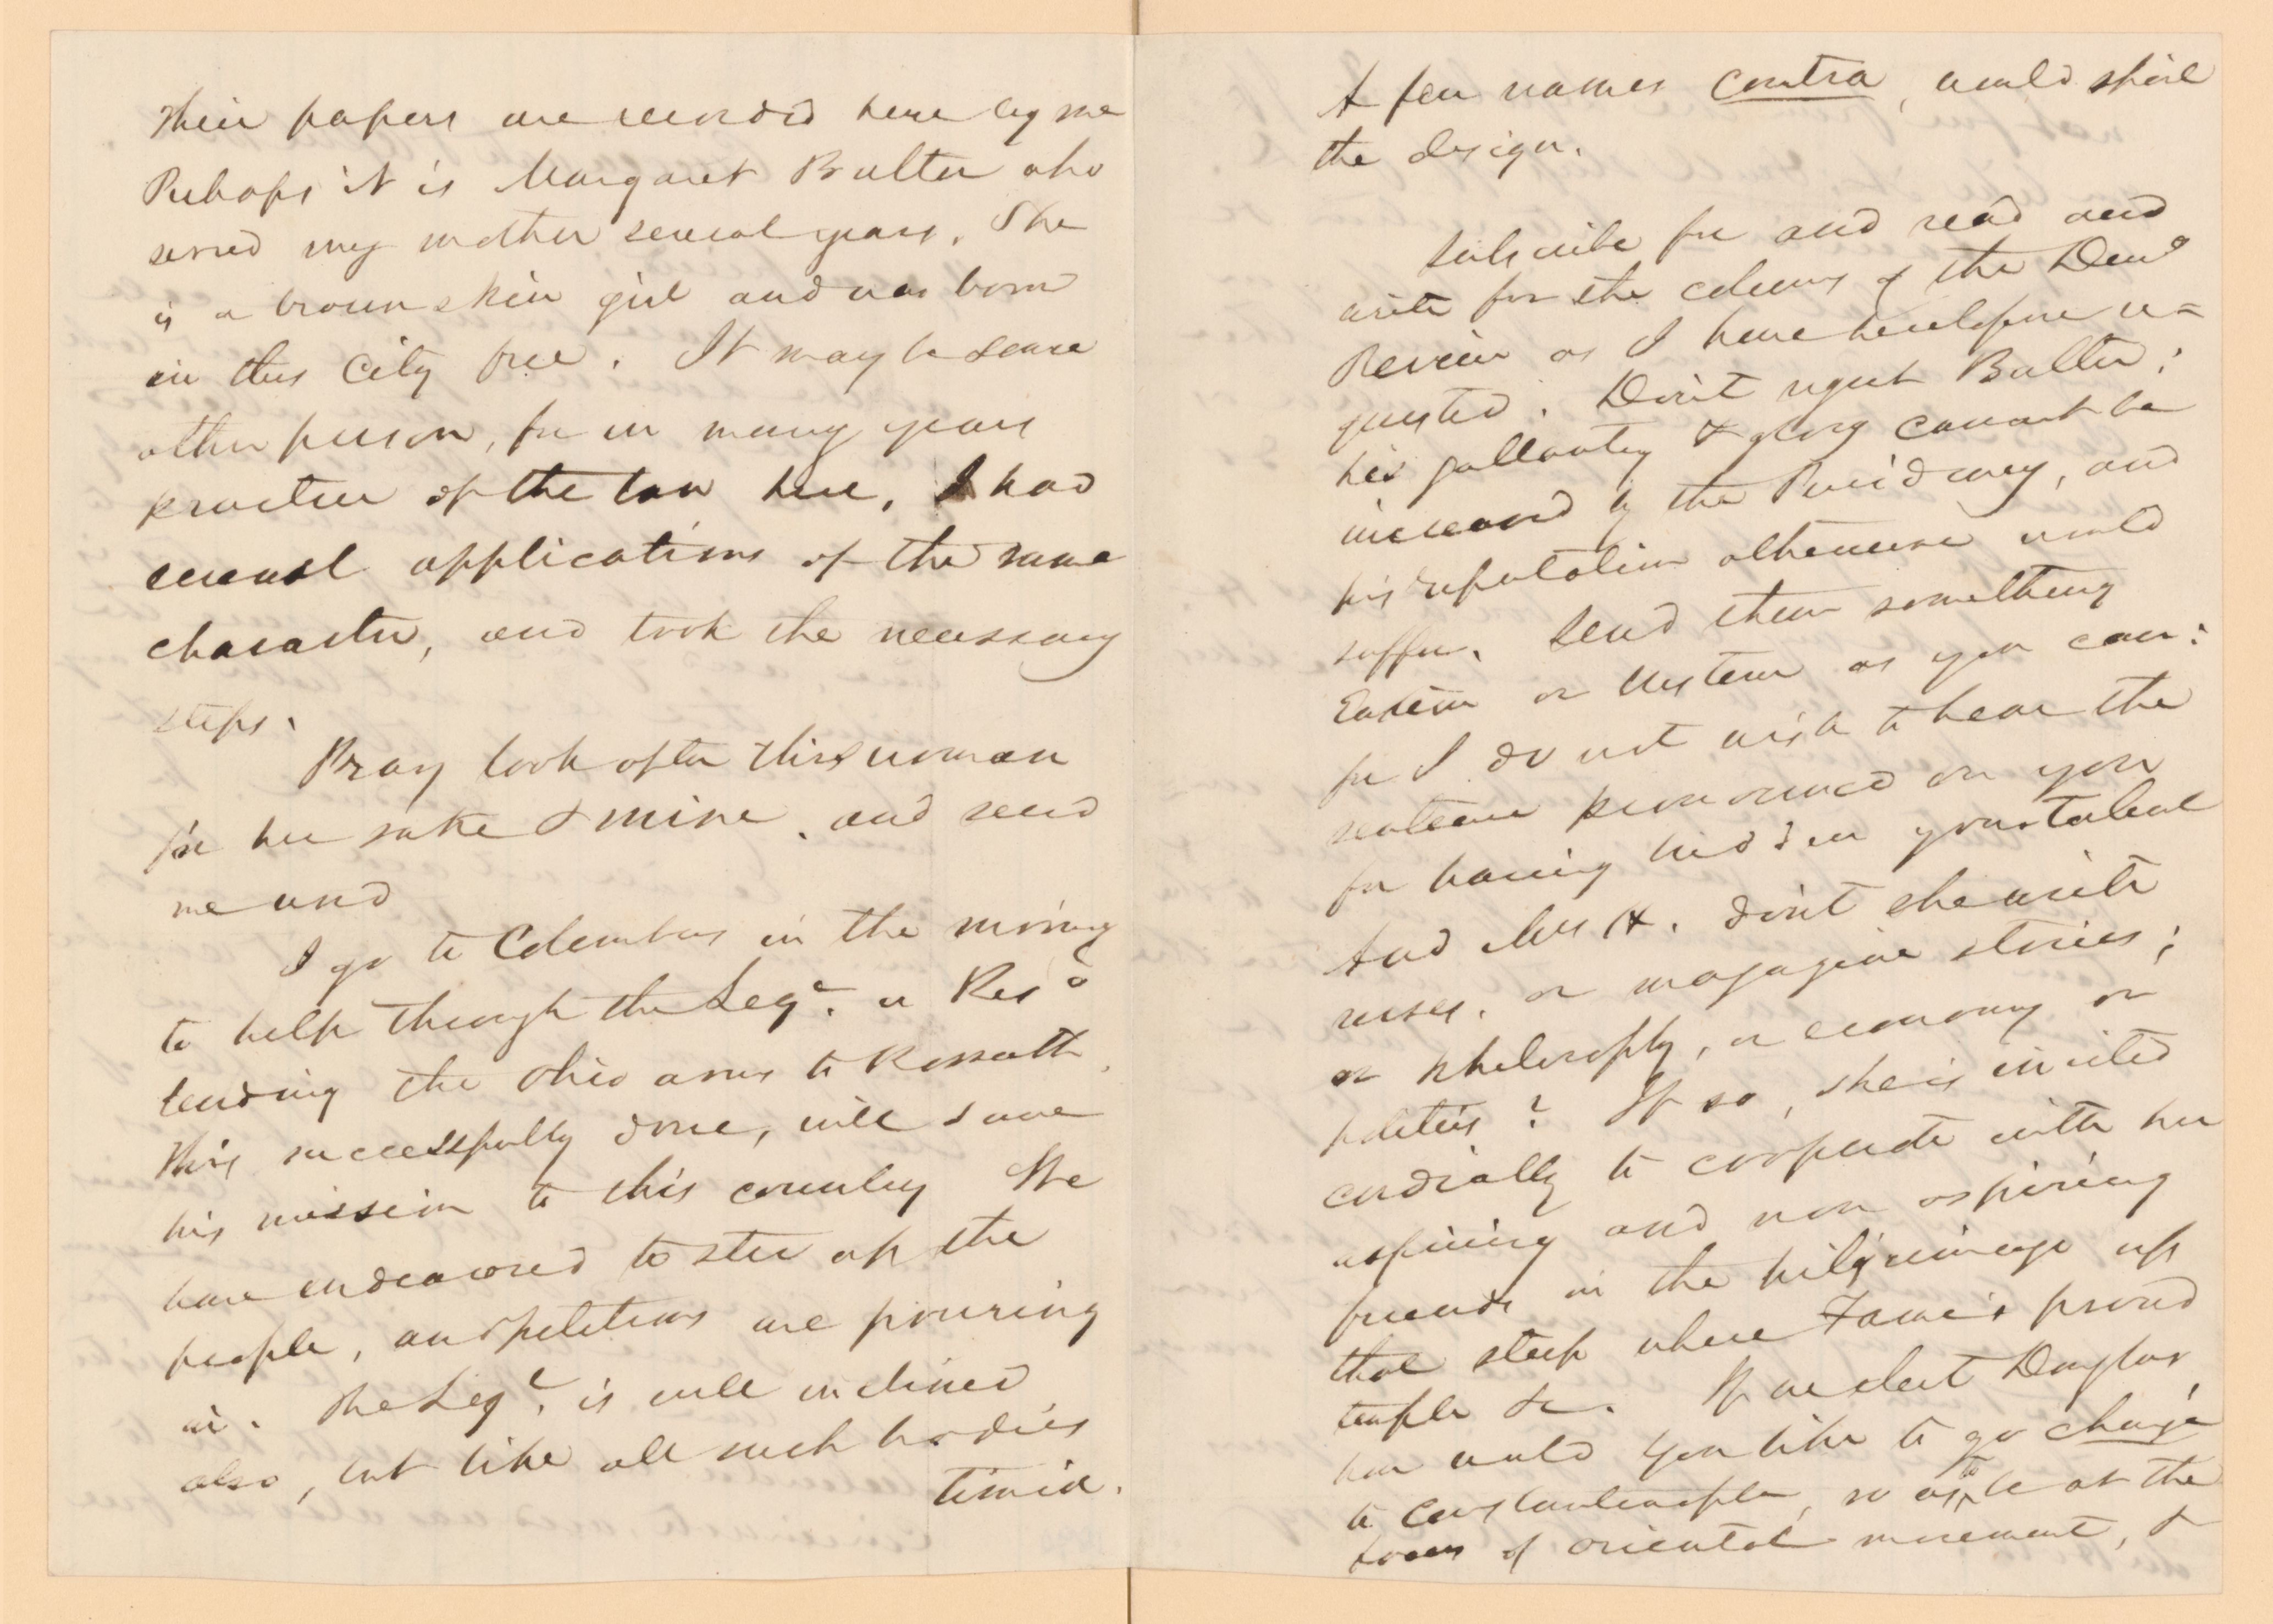 Their papers are recorded here by me
Perhaps it is Margaret Butler who
served my mother several years. She
is a brown skin girl and was born
in this City free. It may be some
other person, for in many years
practice of the law here, I had
several applications of the same
character, and took the necessary
steps.
Pray look after this woman
for her sake & mine, and send
me word
I go to Columbus in the morning
to help through the Lege. a Reso
lending the Ohio arms to Kossuth.
This successfully done, will save
his mission to this country We
have endeavored to stir up the
people, and petitions are pouring
in. The Lege. is well inclined
also, but like all such bodies
timid.
A few names contra, would spoil
the design.
Subscribe for and read and
write for the columns of the Demo
Review as I have heretofore re=
quested. Don't regret Butler;
his gallantry & glory cannot be
increased by the Presidency, and
his reputation otherwise would
suffer. Send them something
Eastern or Western as you can:
for I do not wish to hear the
sentence pronounced on you
for having hidden your talent
And Mrs H. don't she write
verses, or magazine stories;
or philosophy, or economy or
politics? If so, she is invited
cordially to cooperate with her
aspiring and non aspiring
friends in the pilgrimage up
that steep where Fame's proud
temple &c. If we elect Douglas,
how would you like to go chargé
to Constantinople, so as to be at the
focus of oriental movement, &